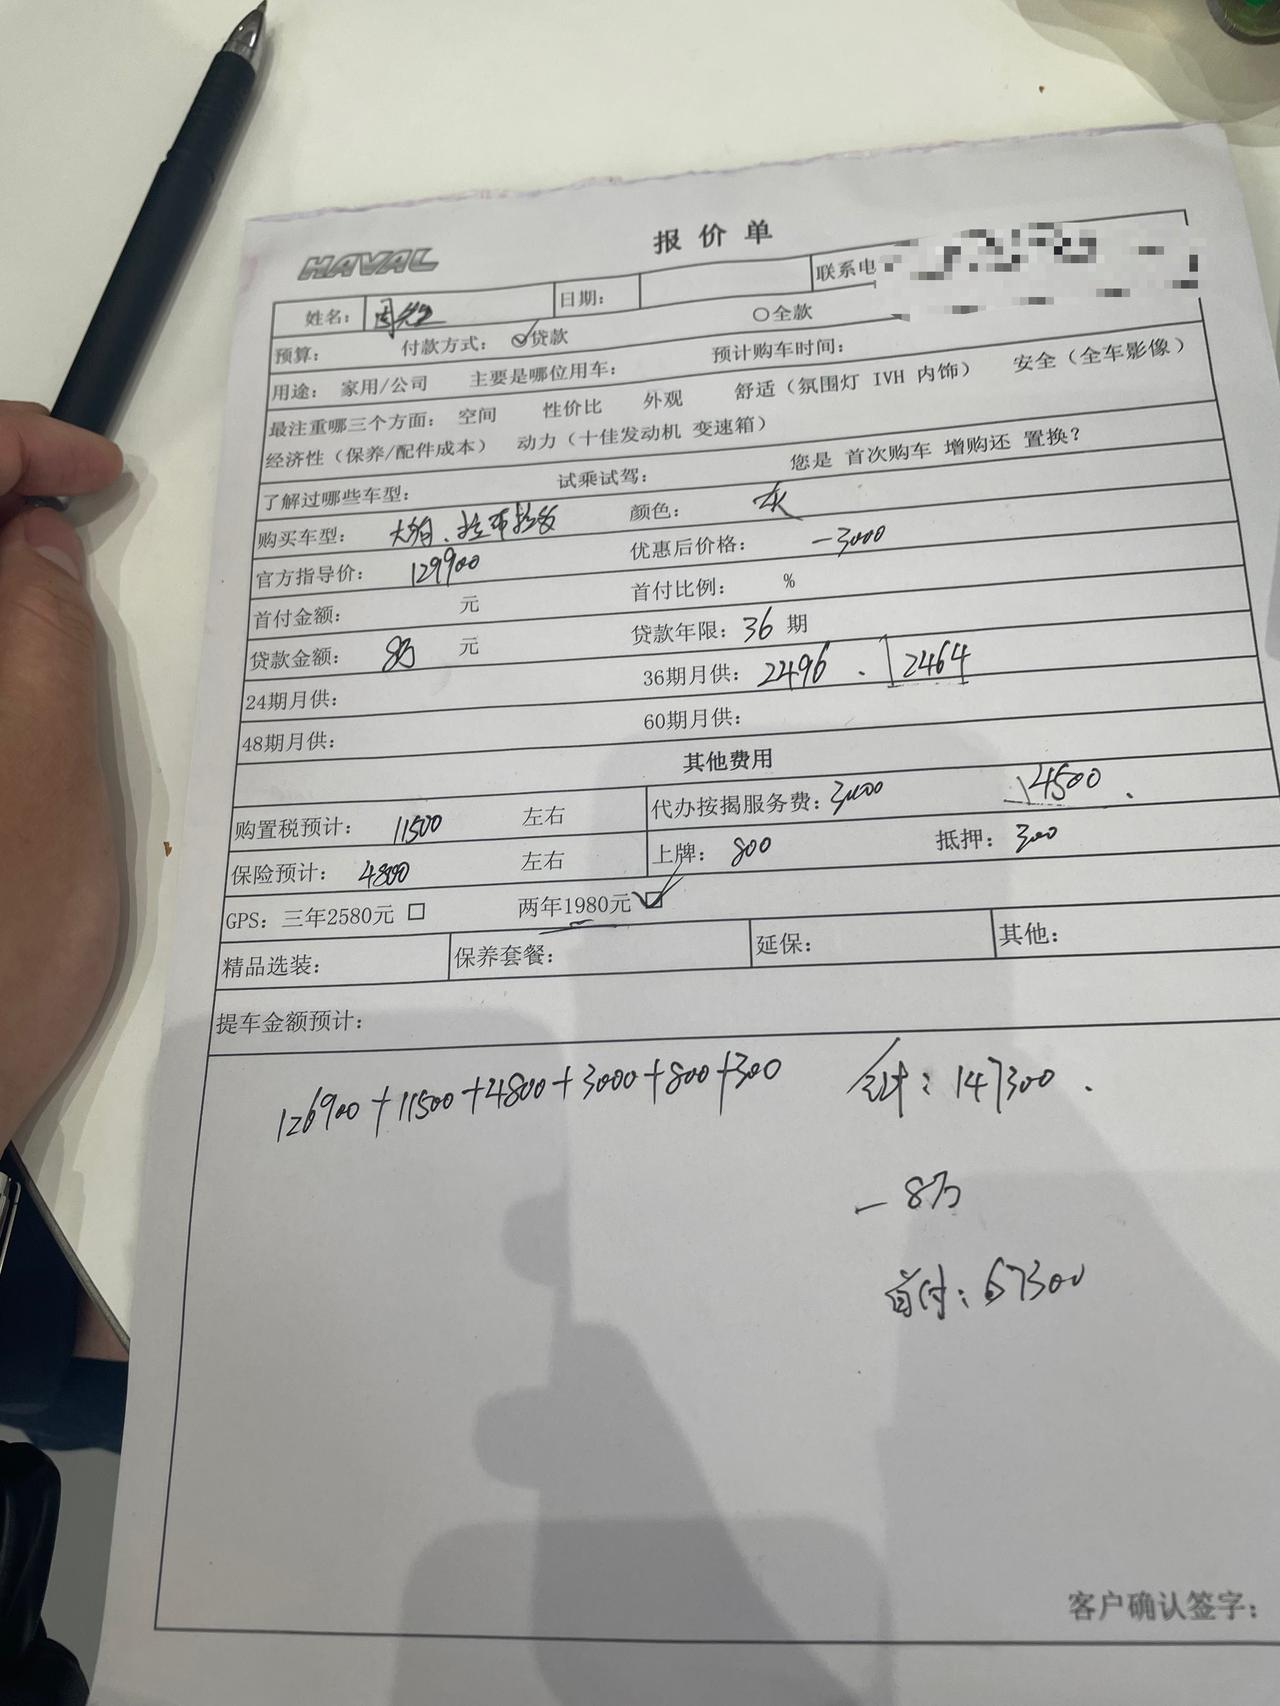 HAVAL
报价单
姓名： 周先生 日期： 联系电
预算： 付款方式： 贷款 全款
用途： 家用/公司 主要是哪位用车： 预计购车时间：
最注重哪三个方面： 空间 性价比 外观 舒适（氛围灯 IVH 内饰） 安全（全车影像）
经济性（保养/配件成本） 动力（十佳发动机 变速箱）
了解过哪些车型： 试乘试驾： 您是 首次购车 增购还 置换？
购买车型： 大狗、拉布拉多 颜色： 灰
官方指导价： 129900 优惠后价格： -3000
首付金额： 元 首付比例： %
贷款金额： 8万 元 贷款年限：36 期
24期月供： 36期月供：2496 . 2464
48期月供： 60期月供：
其他费用
购置税预计： 11500 左右 代办按揭服务费：3000 4500
保险预计： 4800 左右 上牌： 800 抵押： 300
GPS：三年2580元 □ 两年1980元 ☑
精品选装： 保养套餐： 延保： 其他：
提车金额预计：
126900+11500+4800+3000+800+300 合计：147300 .
- 8万
首付：67300
客户确认签字：